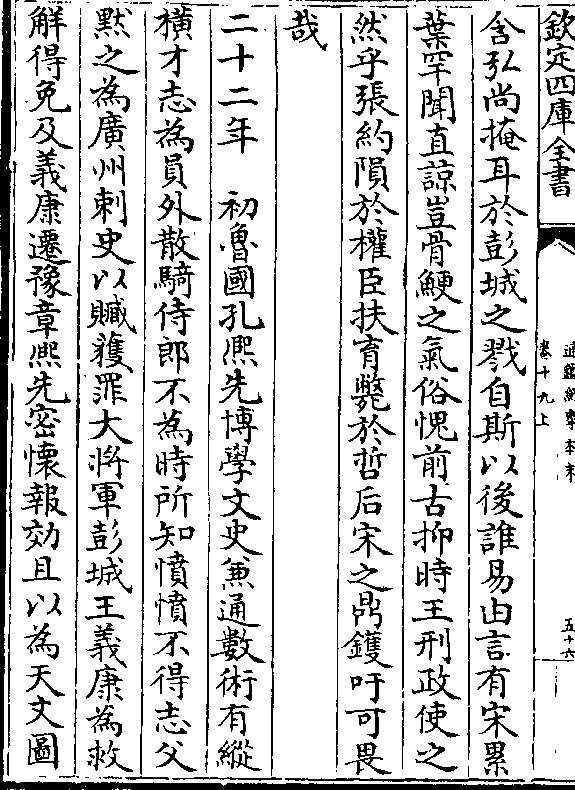 欽定四庫全書
通鑑紀事本末
卷十九上
五十六
含弘尚掩耳於彭城之戮自斯以後誰易由言有宋累
葉罕聞直諒豈骨鯁之氣俗愧前古抑時王刑政使之
然乎張約隕於權臣扶育斃於哲后宋之鼎鑊吁可畏
哉
二十二年　初魯國孔熈先博學文史兼通數術有縱
横才志為員外散騎侍郎不為時所知憤憤不得志父
黙之為廣州刺史以贓獲罪大將軍彭城王義康為救
解得免及義康遷豫章熈先密懷報効且以為天文圖